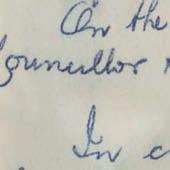 On the
Councillor
In